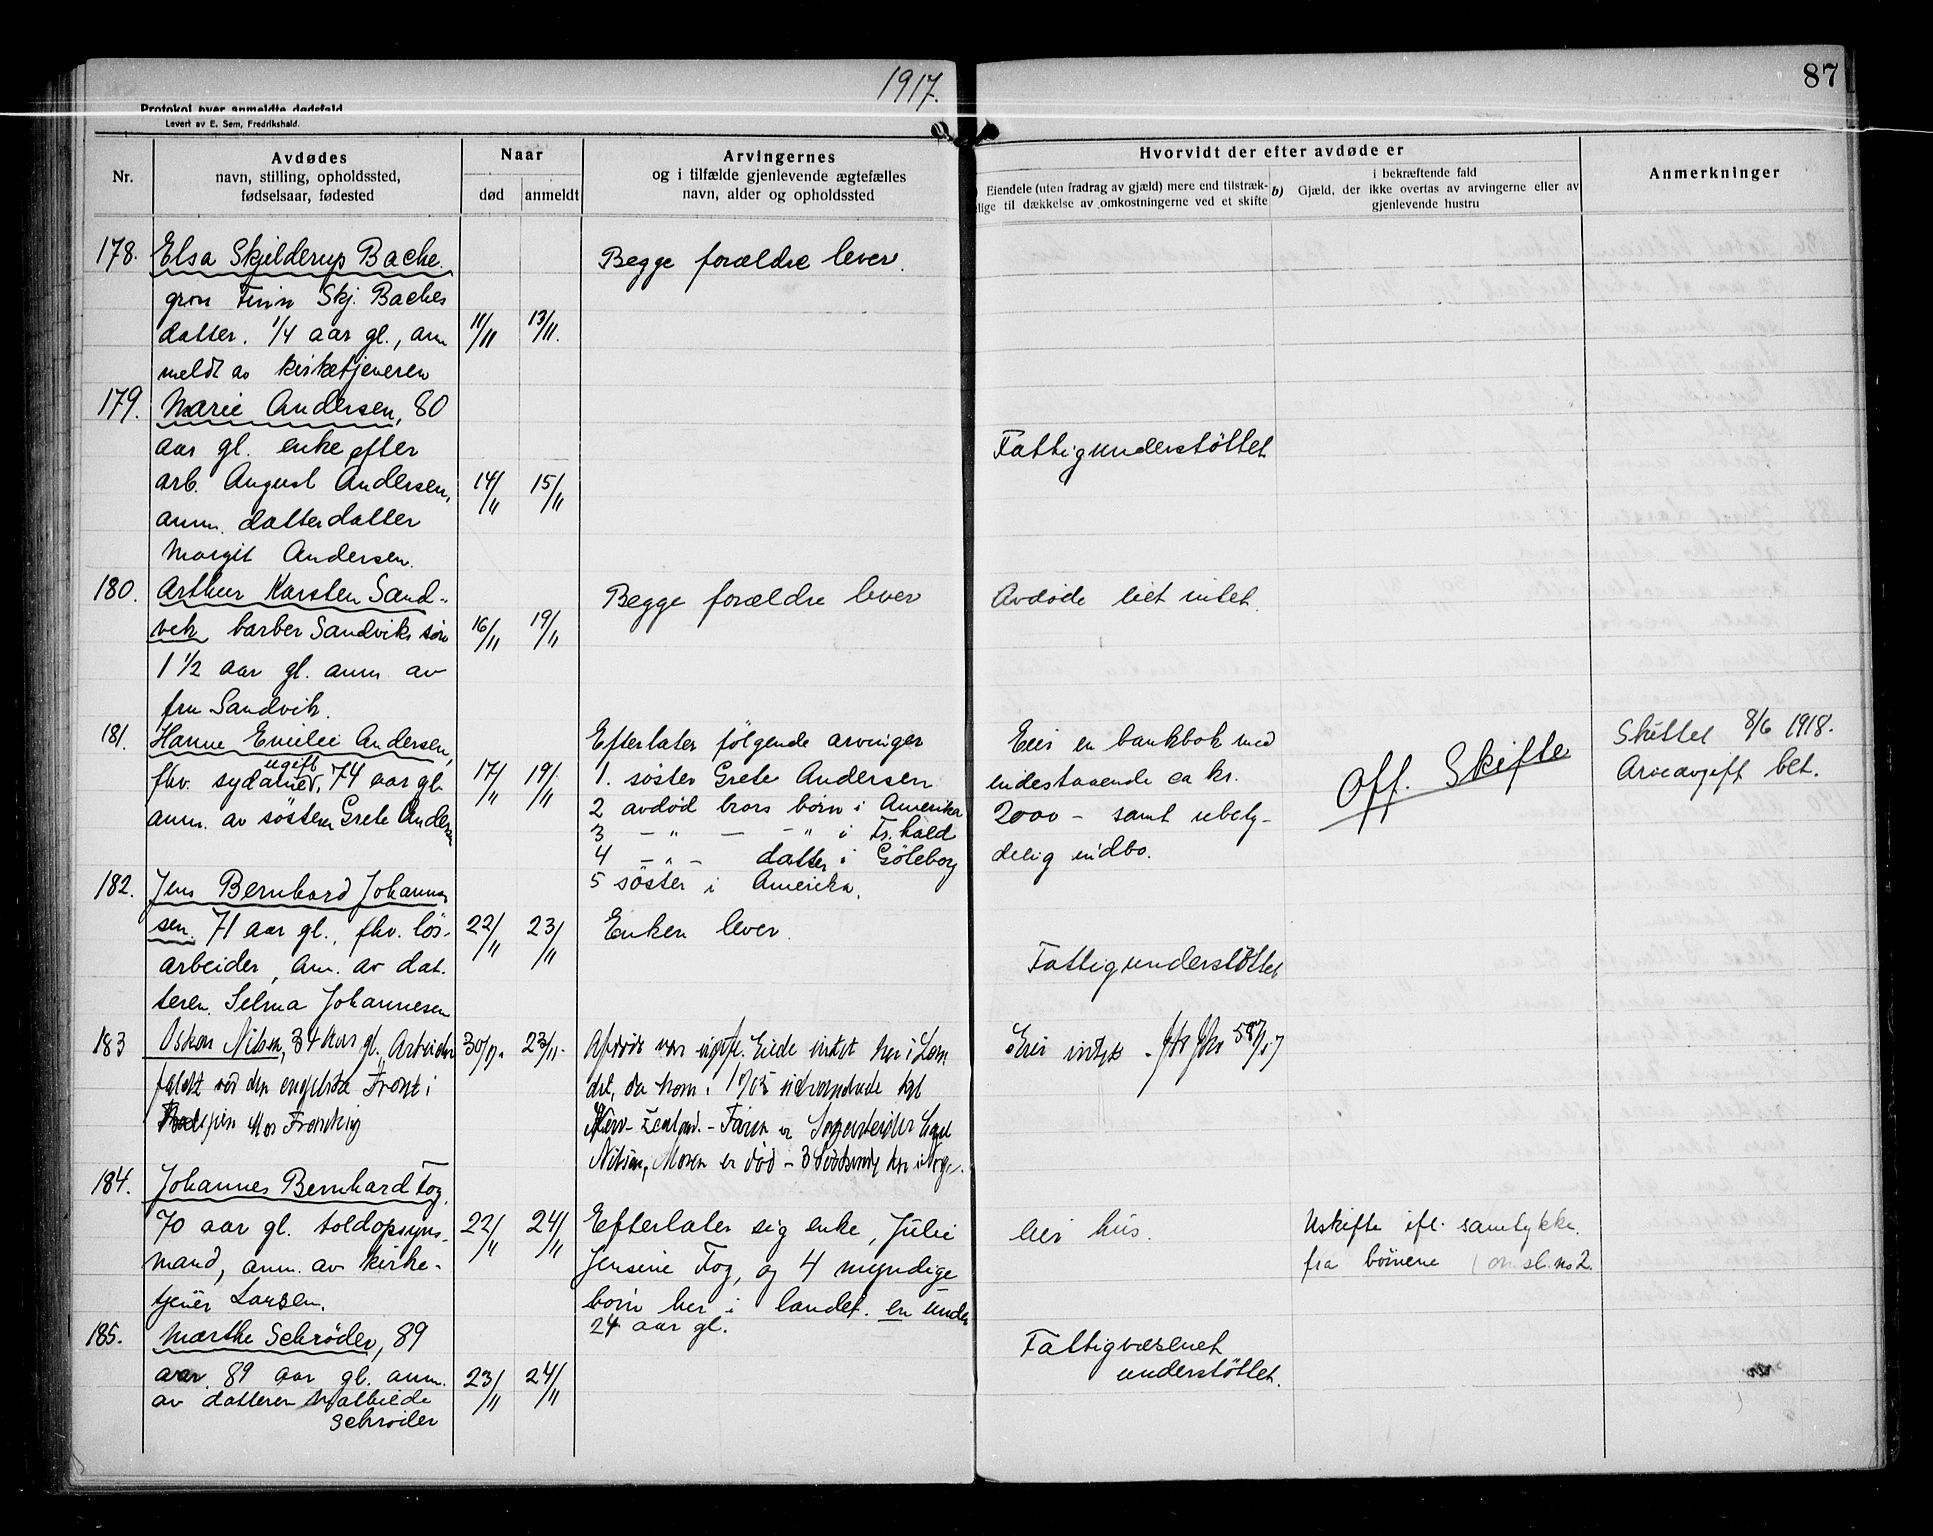 1917.
87
Protokol over anmeldte dødsfald
Levert av E. Sem, Fredrikshald.
Nr.
Avdødes
navn, stilling, opholdssted,
fødselsaar, fødested
Naar
død
anmeldt
Arvingernes
og i tilfælde gjenlevende ægtefælles
navn, alder og opholdssted
Hvorvidt der efter avdøde er
Eiendele (uten fradrag av gjæld) mere end tilstræk-
kelige til dækkelse av omkostningerne ved et skifte
b)
i bekræftende fald
Gjæld, der ikke overtas av arvingerne eller av
gjenlevende hustru
Anmerkninger
178. Elsa Skjelderup Bache.
gros Finn Skj. Baches
datter. 1/4 aar gl., an
meldt av kirketjeneren
11/11 13/11.
Begge forældre lever.
179. Marie Andersen, 80
aar gl. enke efter
arb. August Andersen,
anm. datterdatter
Margit Andersen.
14/11 15/11
Fattigunderstøttet
180. Arthur Karsten Sand-
vik, barber Sandviks søn
1 1/2 aar gl. anm. av
fru Sandvik.
16/11 19/11
Begge forældre lever
Avdøde eiet intet.
181. Hanne Emilie Andersen,
ugift
fhv. sydame, 74 aar gl.
anm. av søsteren Grete Andersen
17/11 19/11
Efterlater følgende arvinger
1. søster Grete Andersen
2 avdød brors børn i Amerika
3 — " — — " i Fr.hald
4 — " — datter i Göteborg
5 søster i Amerika.
Eier en bankbok med
indestaaende ca kr.
2000 – samt ubety-
delig indbo.
Off. Skifte
Skiftet 8/6 1918.
Arveavgift bet.
182. Jens Bernhard Johannes
sen. 71 aar gl., fhv. løs-
arbeider, an. av dat.
teren Selma Johannesen
22/11 23/11
Enken lever.
Fattigunderstøttet
183 Oskar Nilsen, 34 Aar gl. Arbeider
faldt ved den engelske Front i
Frankrig
23/11.
Afdøde var ugift. Eiede intet her i Lan
det, da han i
New-Zealand. – Faren er
Nilsen, Moren er død – 3 Søskende her i Norge.
Eier intet.
184. Johannes Bernhard Fog.
70 aar gl. toldopsyns-
mand, anm. av kirke-
tjener Larsen.
22/11 24/11
Efterlater sig enke, Julie
Jensine Fog, og 4 myndige
børn her i landet. en under
24 aar gl.
Eier hus.
Uskifte ifl. samtykke
fra børnene
185. Marthe Schrøder, 89
aar 89 aar gl. anm.
av datteren Mathilde
Schrøder
23/11 24/11
Fattigvæsenet
understøttet.